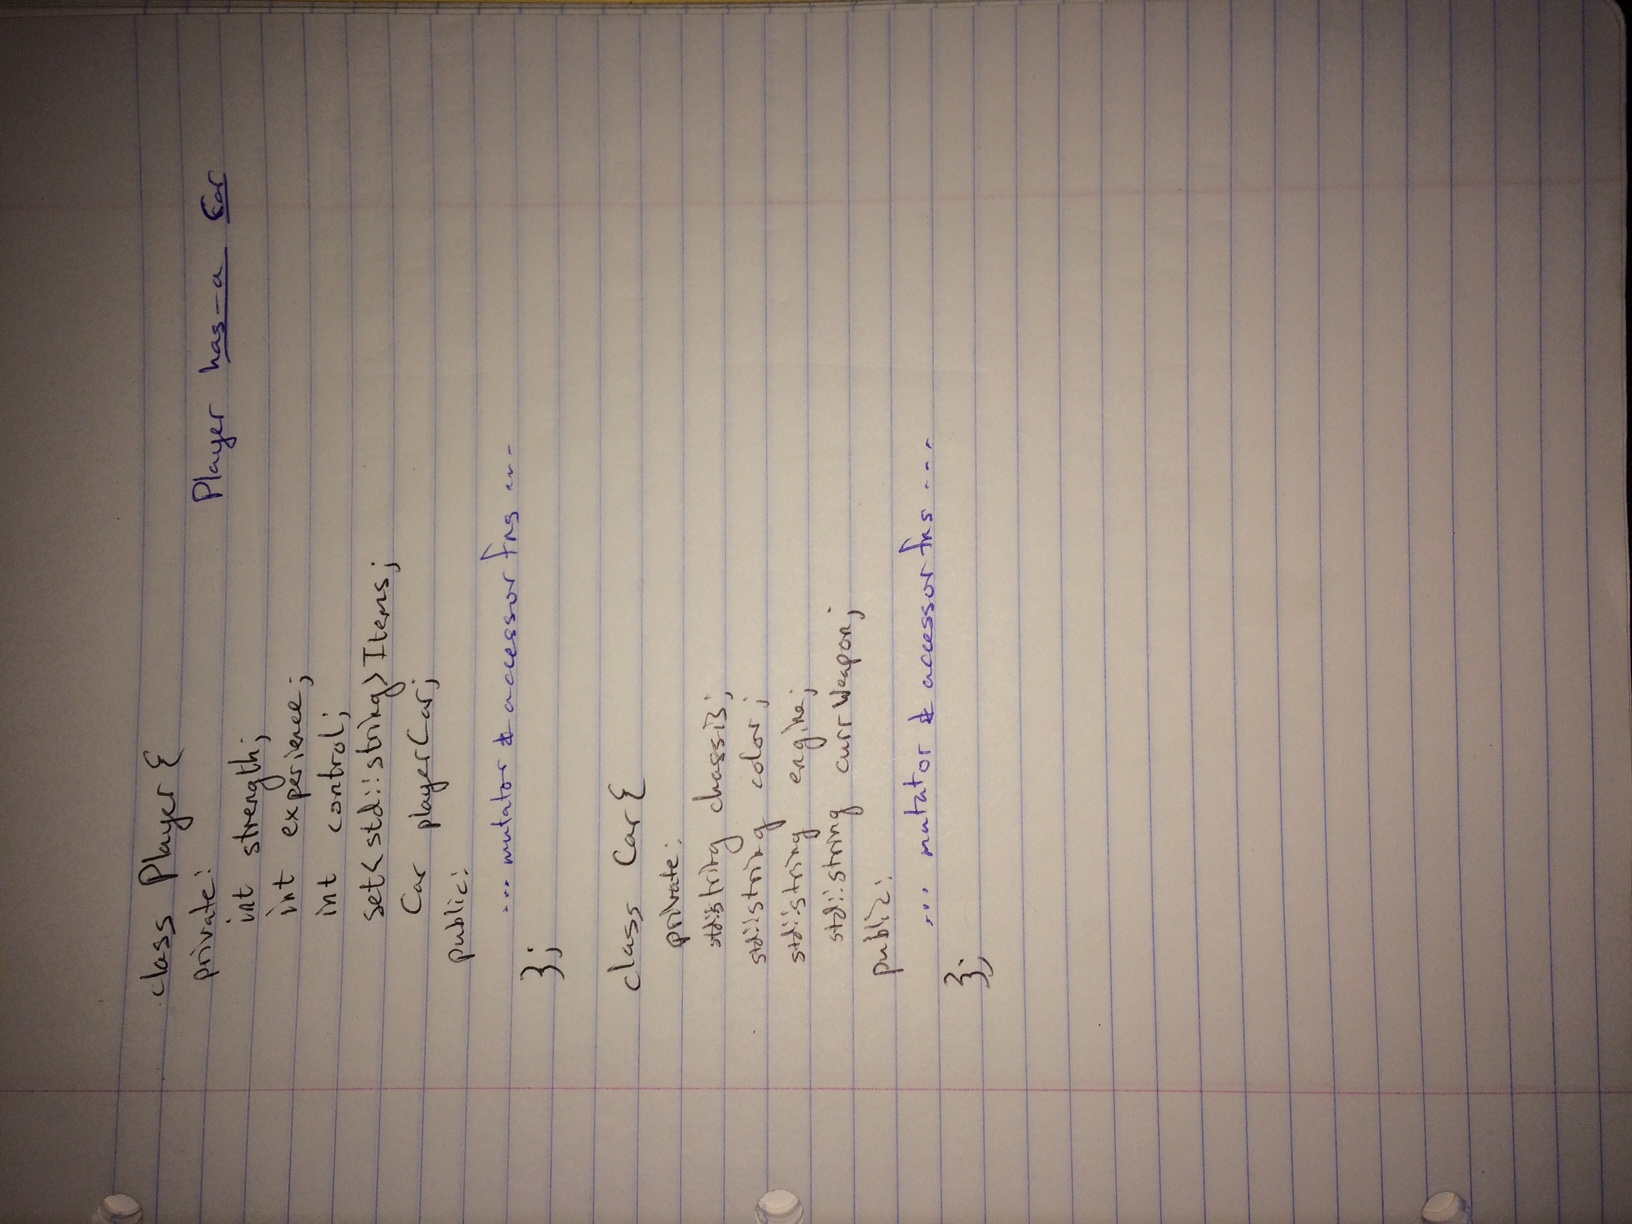 class Player {
private:
Player has-a Car
int strength;
int experience;
int control;
set<std::string> Items;
Car playerCar;
public:
... mutator & accessor fns ...
};
class Car {
private:
std::string chassis;
std::string color;
std::string engine;
std::string currWeapon;
public:
... mutator & accessor fns ...
};